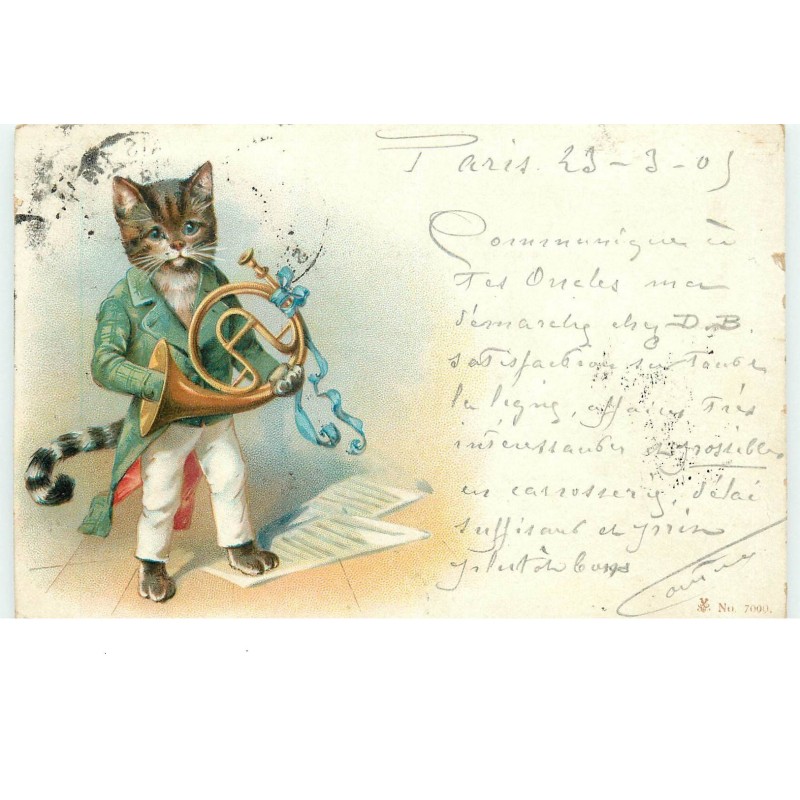 Paris 23-3-05
Communique à
tes Oncles ma
démarche chez D.B.
satisfaction sur toute
la ligne, affaires très
intéressantes et possibles
en carrosserie, délai
suffisant et prix
plutôt bons
No. 7000.